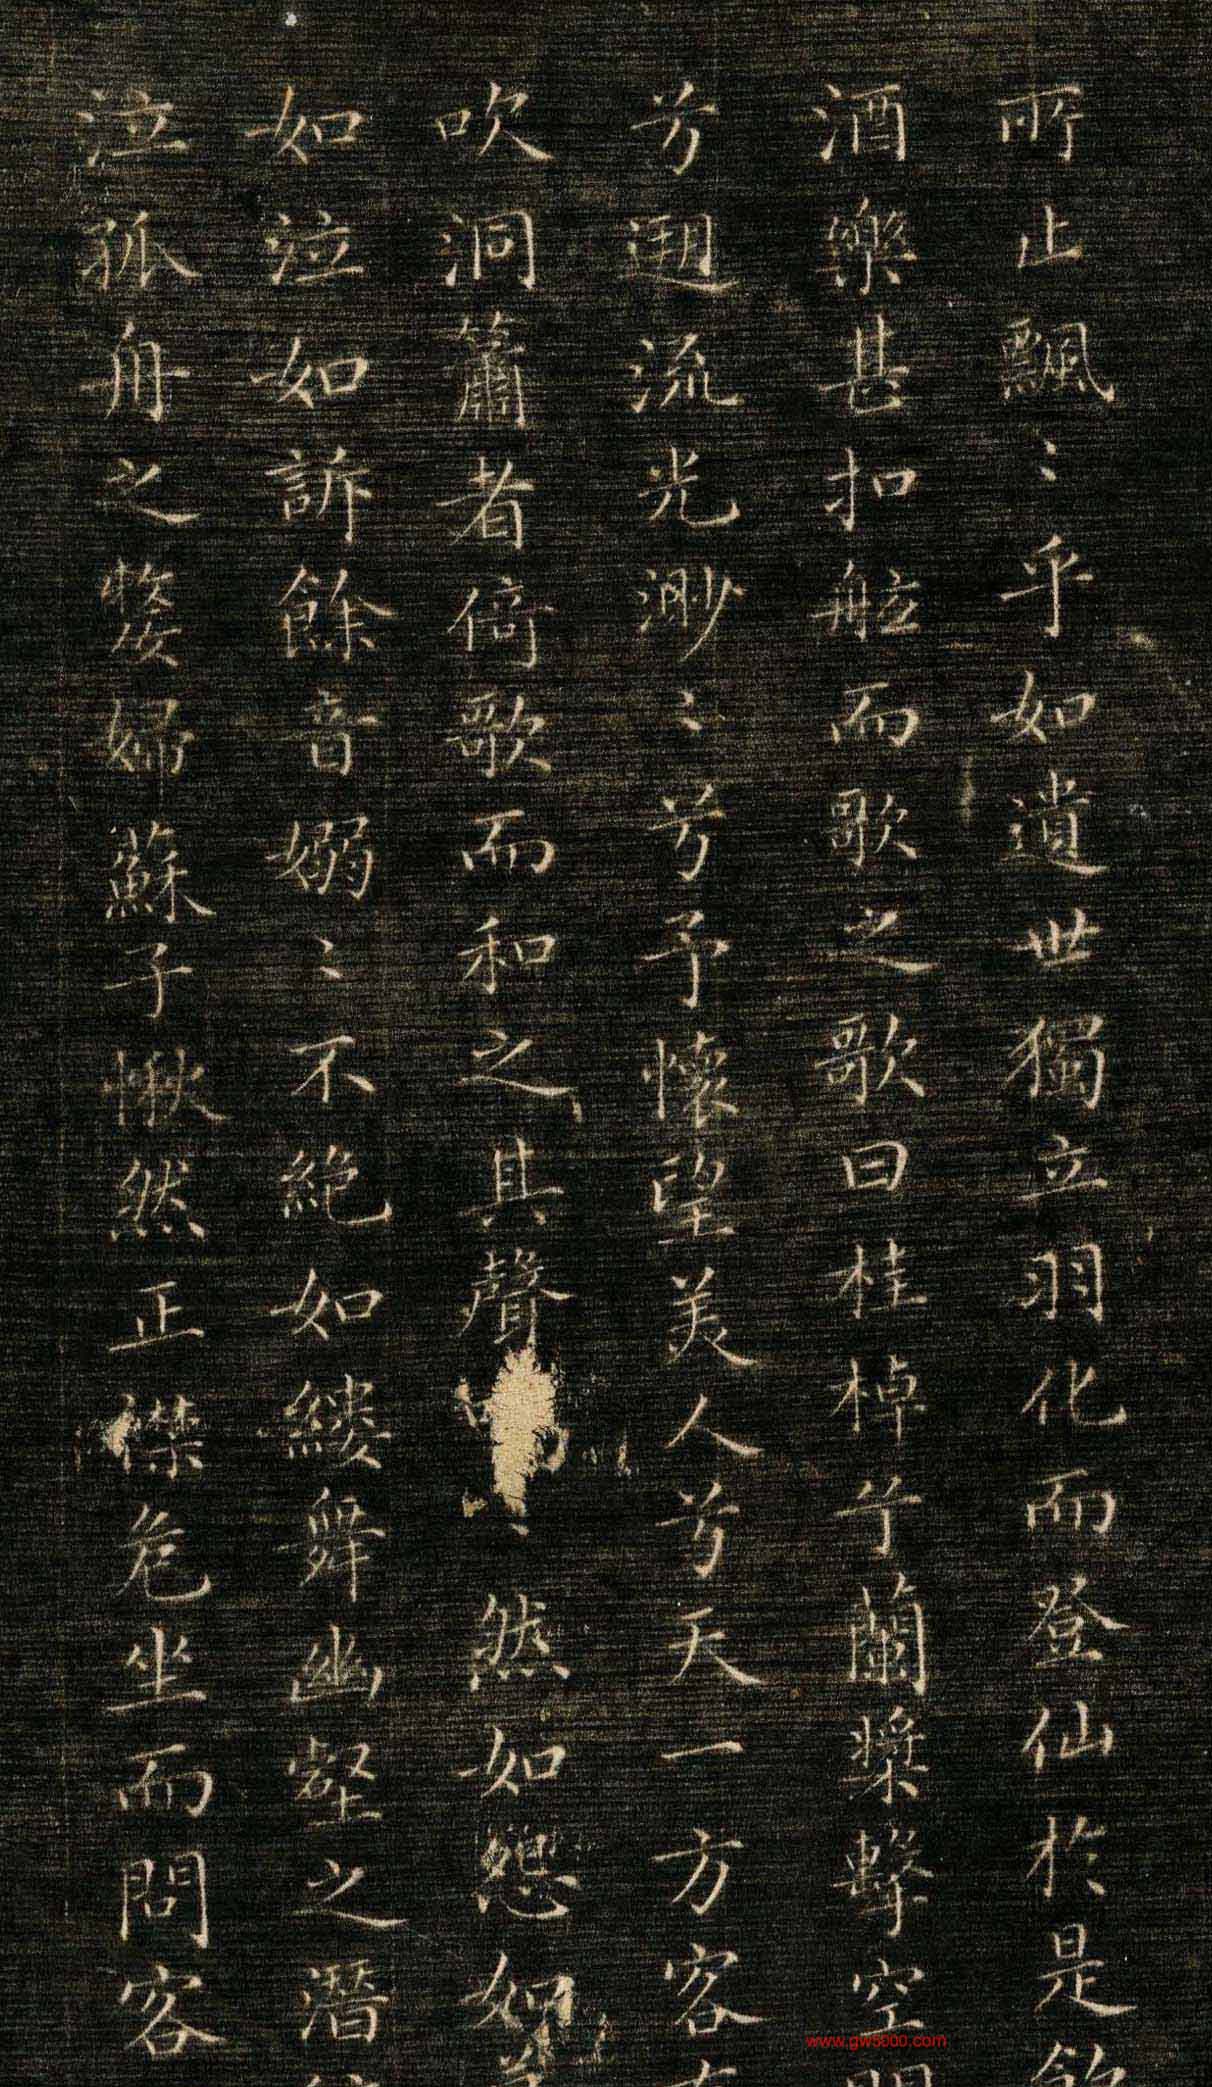 所止飄〻乎如遺世獨立羽化而登仙於是飲
酒樂甚扣舷而歌之歌曰桂棹兮蘭槳擊空明
兮遡流光渺〻兮予懷望美人兮天一方客有
吹洞簫者倚歌而和之其聲〻然如怨如
如泣如訴餘音嫋〻不絕如縷舞幽壑之潛
泣孤舟之嫠婦蘇子愀然正襟危坐而問客
www.gw5000.com